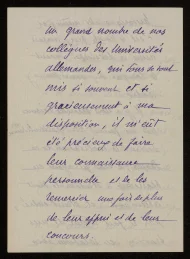 un grand nombre de nos
collègues des Universités
allemandes, qui tous se sont
mis si souvent et si
gracieusement à ma
disposition, il m'eût
été précieux de faire
leur connaissance
personnelle et de les
remercier une fois de plus
de leur appui et de leur
concours.